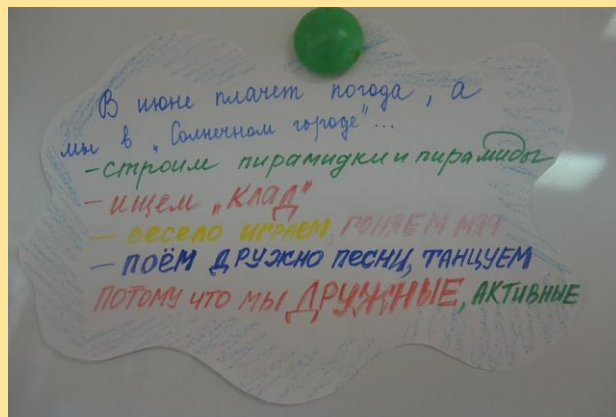 В июне плачет погода, а
мы в „Солнечном городе"...
- строим пирамидки и пирамиды
- ищем „КЛАД"
- весело играем, гоняем мяч
- поём дружно песни, танцуем
потому что мы ДРУЖНЫЕ, АКТИВНЫЕ